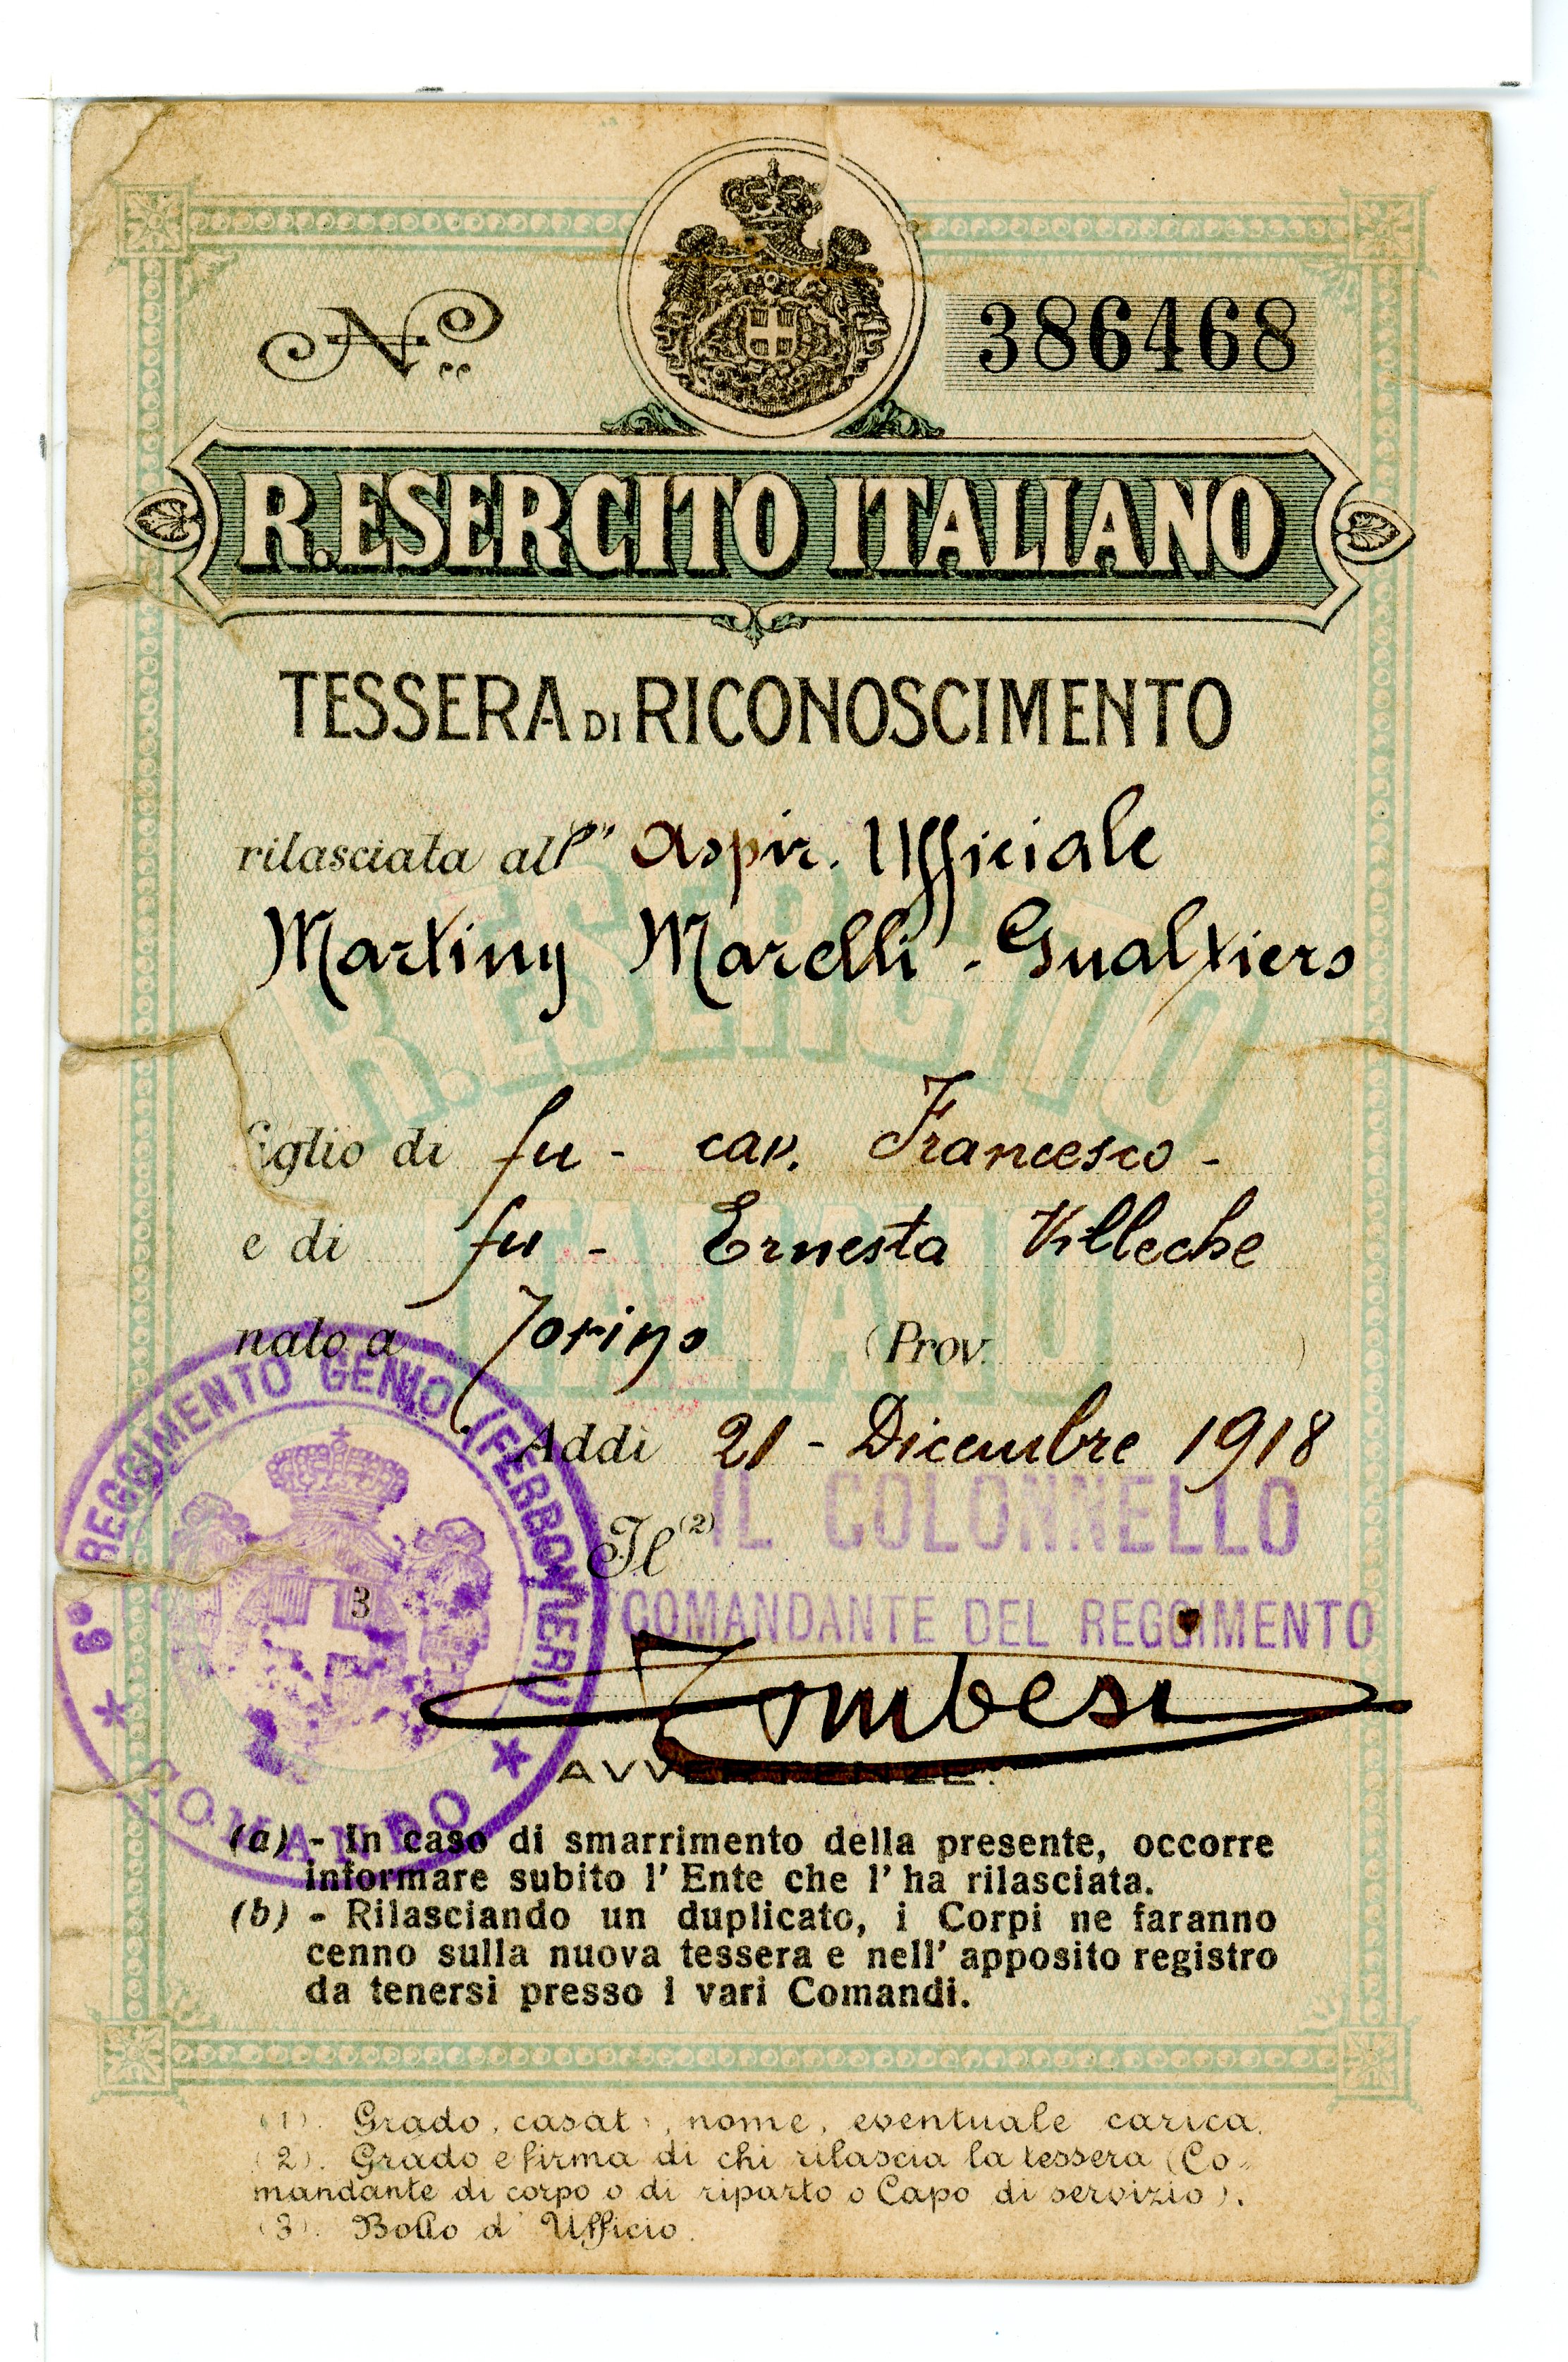 N.o 386468
R. ESERCITO ITALIANO
TESSERA DI RICONOSCIMENTO
rilasciata all' (1) Aspir. Ufficiale
Martiny Marelli - Gualtiero
figlio di fu - cav. Francesco -
e di fu - Ernesta Villeche
nato a Torino (Prov. )
Addì 21 - Dicembre 1918
Il (2) IL COLONNELLO
COMANDANTE DEL REGGIMENTO
Tombesi
6º REGGIMENTO GENIO (FERROVIERI)
* COMANDO *
3
AVVERTENZE.
(a) - In caso di smarrimento della presente, occorre
informare subito l' Ente che l' ha rilasciata.
(b) - Rilasciando un duplicato, i Corpi ne faranno
cenno sulla nuova tessera e nell' apposito registro
da tenersi presso i vari Comandi.
(1). Grado, casato, nome, eventuale carica.
(2). Grado e firma di chi rilascia la tessera (Co-
mandante di corpo o di riparto o Capo di servizio).
(3). Bollo d' Ufficio.
R. ESERCITO
ITALIANO